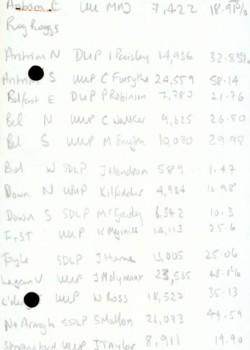 UU MAJ 7,422 18.9%
Antrim N DUP I Paisley 14,936 32.85%
Antrim S UUP C Forsythe 24,559 58.14
Belfast E DUP P Robinson 7,787 21.76
Bel N UUP C Walker 9,625 26.80
Bel S UUP M Smyth 10,070 29.98
Bel W SDLP J Hendron 589 1.47
Down N Kilfedder 4,934 10.98
Down S SDLP M Grady 6,342 10.3
F,ST UUP K Maginnis 14,113 25.6
Foyle SDLP J Hume 11,005 25.06
Lagan V UUP J Molyneaux 23,565
UUP W Ross 18,527 35.13
N+Armagh SDLP S Mallon 21,073 49.59
Strangford UUP J Taylor 8,911 19.90